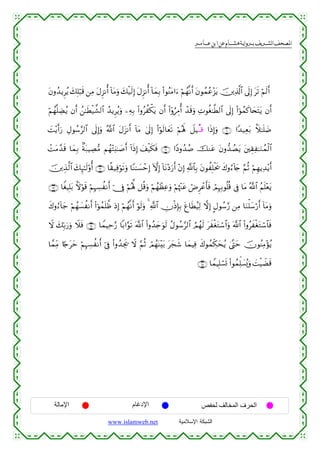 المصحف الشريف برواية هشام عن ابن عامر
أَلَمْ تَرَ إِلَى ٱلَّذِينَ يَزْعُمُونَ أَنَّهُمْ ءَامَنُوا۟ بِمَآ أُنزِلَ إِلَيْكَ وَمَآ أُنزِلَ مِن قَبْلِكَ يُرِيدُونَ
أَن يَتَحَاكَمُوٓا۟ إِلَى ٱلطَّٰغُوتِ وَقَدْ أُمِرُوٓا۟ أَن يَكْفُرُوا۟ بِهِۦ وَيُرِيدُ ٱلشَّيْطَٰنُ أَن يُضِلَّهُمْ
ضَلَٰلًۢا بَعِيدًا ۝ وَإِذَا قِيلَ لَهُمْ تَعَالَوْا۟ إِلَىٰ مَآ أَنزَلَ ٱللَّهُ وَإِلَى ٱلرَّسُولِ رَأَيْتَ
ٱلْمُنَٰفِقِينَ يَصُدُّونَ عَنكَ صُدُودًا ۝ فَكَيْفَ إِذَآ أَصَٰبَتْهُم مُّصِيبَةٌۢ بِمَا قَدَّمَتْ
أَيْدِيهِمْ ثُمَّ جَآءُوكَ يَحْلِفُونَ بِٱللَّهِ إِنْ أَرَدْنَآ إِلَّآ إِحْسَٰنًا وَتَوْفِيقًا ۝ أُو۟لَٰٓئِكَ ٱلَّذِينَ
يَعْلَمُ ٱللَّهُ مَا فِى قُلُوبِهِمْ فَأَعْرِضْ عَنْهُمْ وَعِظْهُمْ وَقُل لَّهُمْ فِىٓ أَنفُسِهِمْ قَوْلًۢا بَلِيغًا ۝
وَمَآ أَرْسَلْنَا مِن رَّسُولٍ إِلَّا لِيُطَاعَ بِإِذْنِ ٱللَّهِ ۚ وَلَوْ أَنَّهُمْ إِذ ظَّلَمُوٓا۟ أَنفُسَهُمْ جَآءُوكَ
فَٱسْتَغْفَرُوا۟ ٱللَّهَ وَٱسْتَغْفَرَ لَهُمُ ٱلرَّسُولُ لَوَجَدُوا۟ ٱللَّهَ تَوَّابًا رَّحِيمًا ۝ فَلَا وَرَبِّكَ لَا
يُؤْمِنُونَ حَتَّىٰ يُحَكِّمُوكَ فِيمَا شَجَرَ بَيْنَهُمْ ثُمَّ لَا يَجِدُوا۟ فِىٓ أَنفُسِهِمْ حَرَجًا مِّمَّا
قَضَيْتَ وَيُسَلِّمُوا۟ تَسْلِيمًا ۝
الحرف المخالف لحفص الإدغام الإمالة
الشبكة الإسلامية www.islamweb.net